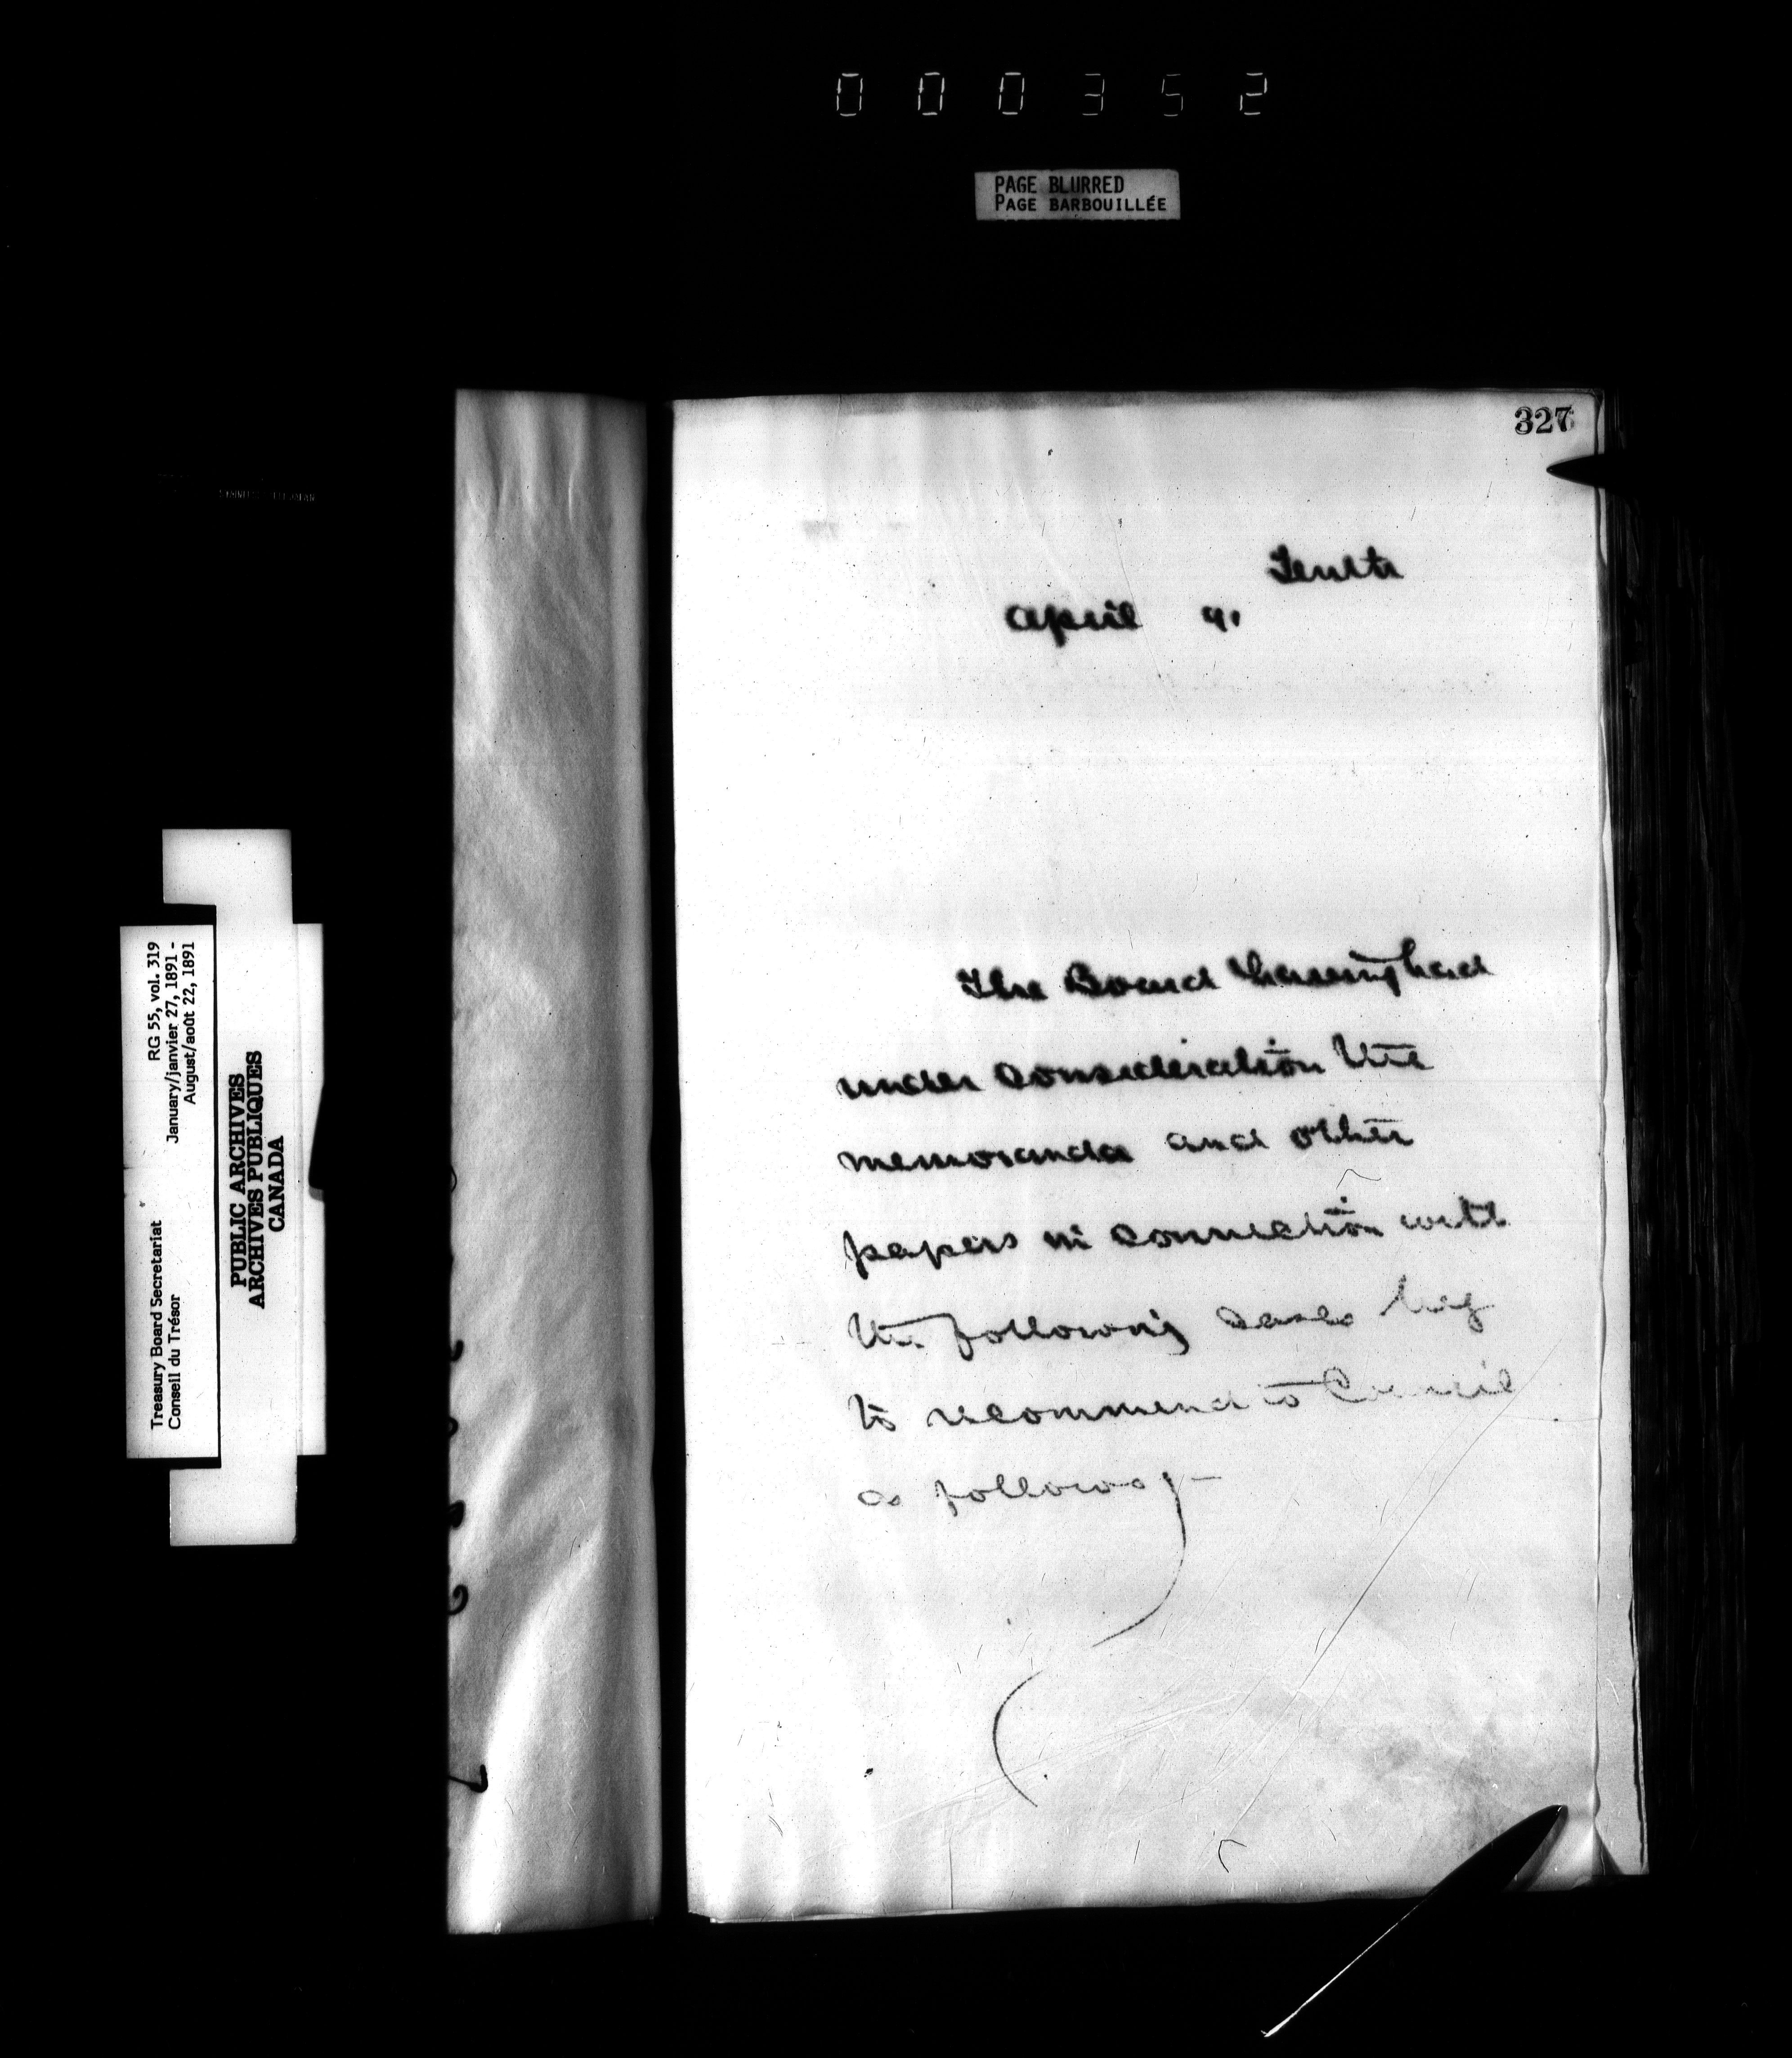 000352
PAGE BLURRED
PAGE BARBOUILLÉE
327
Tenth
April 91
The Board having had
under consideration the
memoranda and other
papers in connection with
the following cases beg
to recommend to Council
as follows :-
Treasury Board Secretariat
Conseil du Trésor
RG 55, vol. 319
January/janvier 27, 1891 -
August/août 22, 1891
PUBLIC ARCHIVES
ARCHIVES PUBLIQUES
CANADA